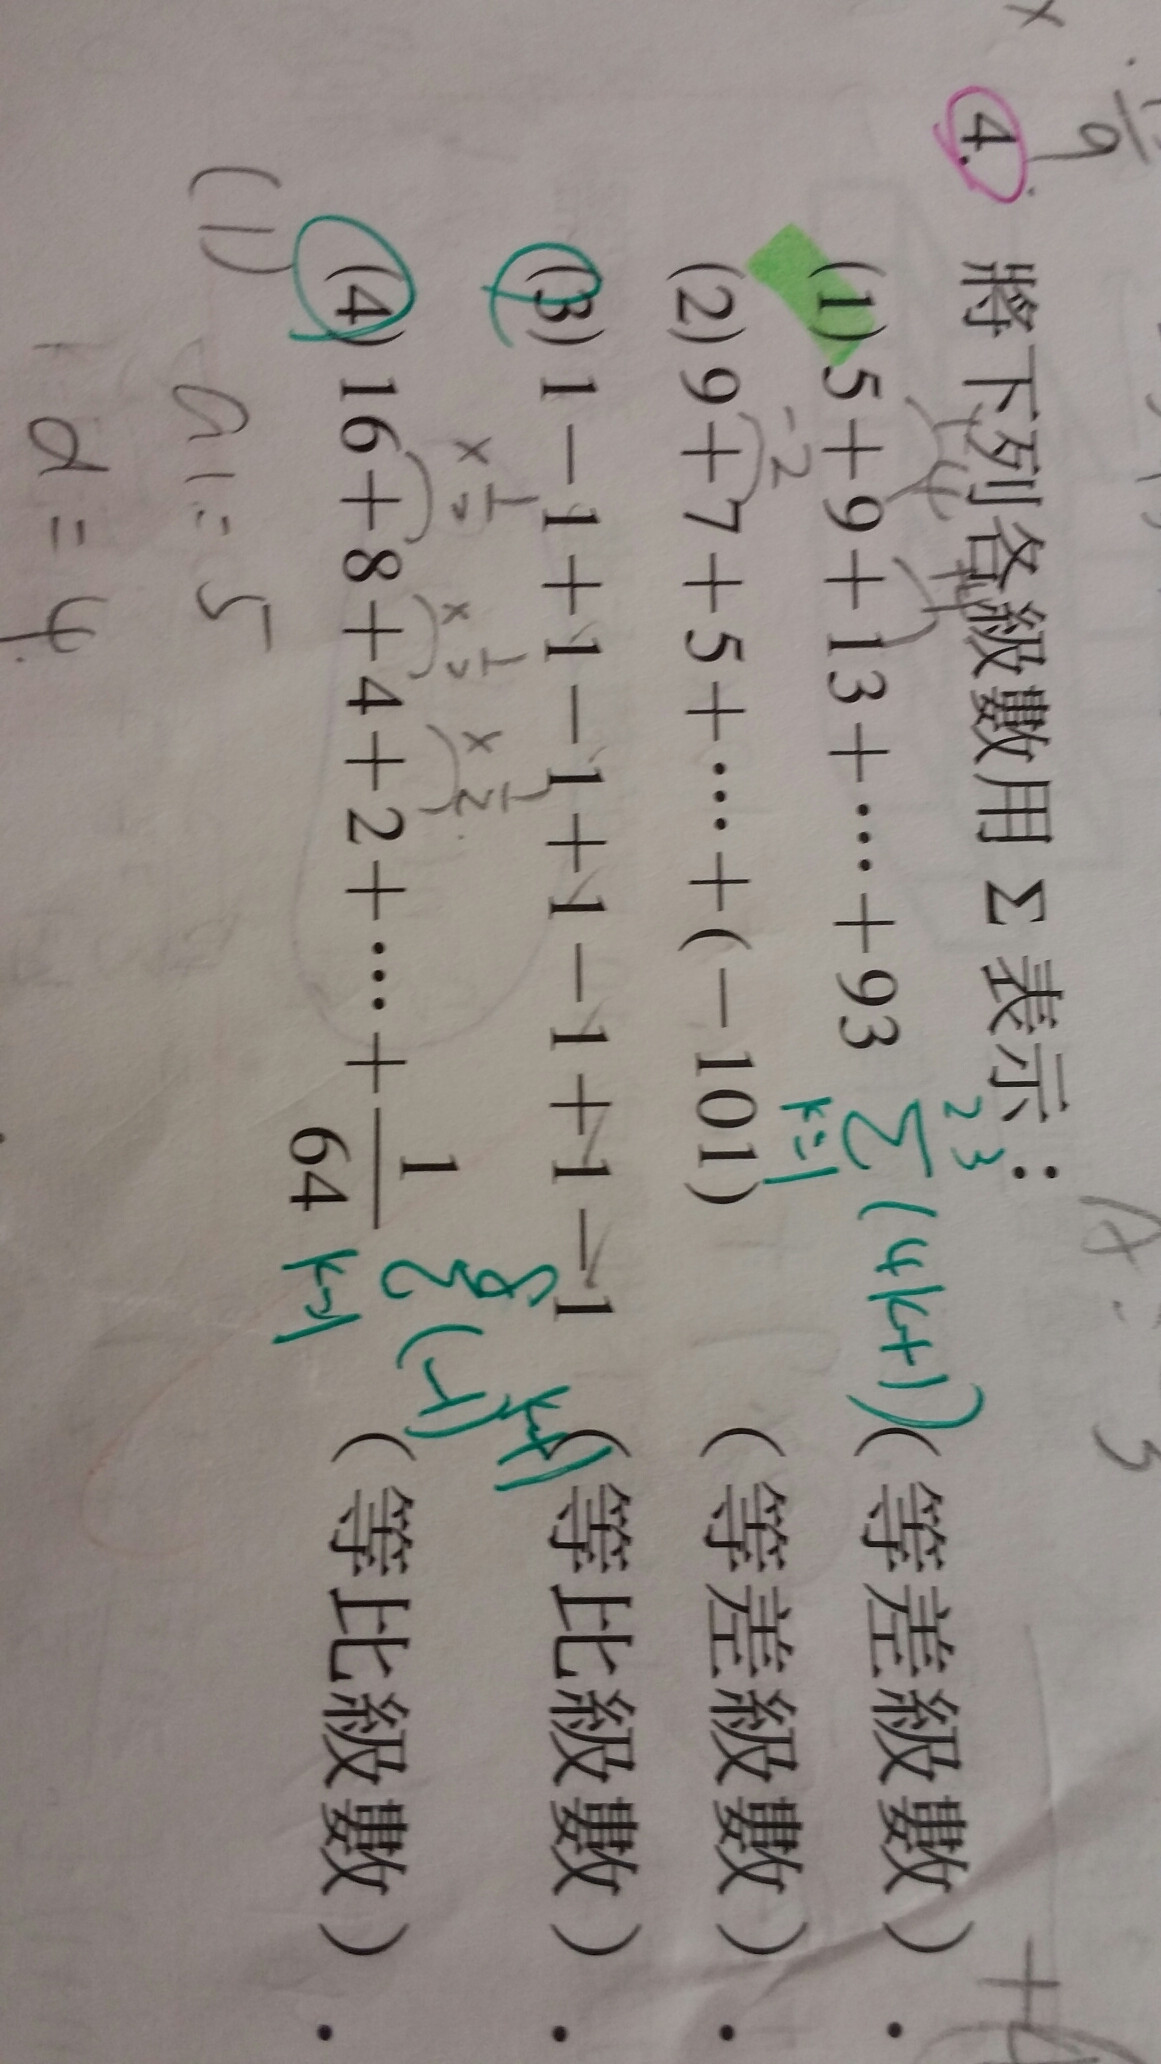 4. 將下列各級數用 Σ 表示：
(1) 5+9+13+⋯+93 （等差級數）.
23
Σ (4k+1)
k=1
-2
(2) 9+7+5+⋯+(−101) （等差級數）.
(3) 1−1+1−1+1−1+1−1 （等比級數）.
×1/2 ×1/2 ×1/2
8
Σ (-1)^{k+1}
k=1
(4) 16+8+4+2+⋯+1/64 （等比級數）.
(1) a1=5
d=4